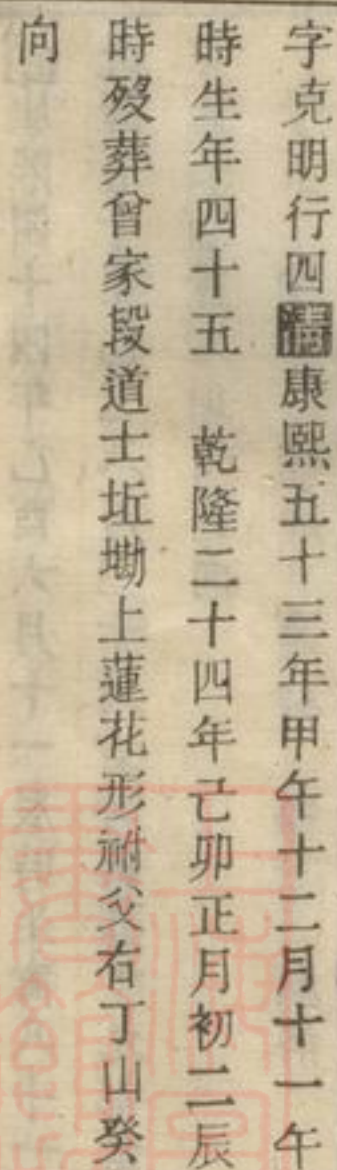 字克明行四清康熙五十三年甲午十二月十一午
時生年四十五 乾隆二十四年己卯正月初二辰
時歿葬曾家段道士坵墈上蓮花形祔父右丁山癸
向